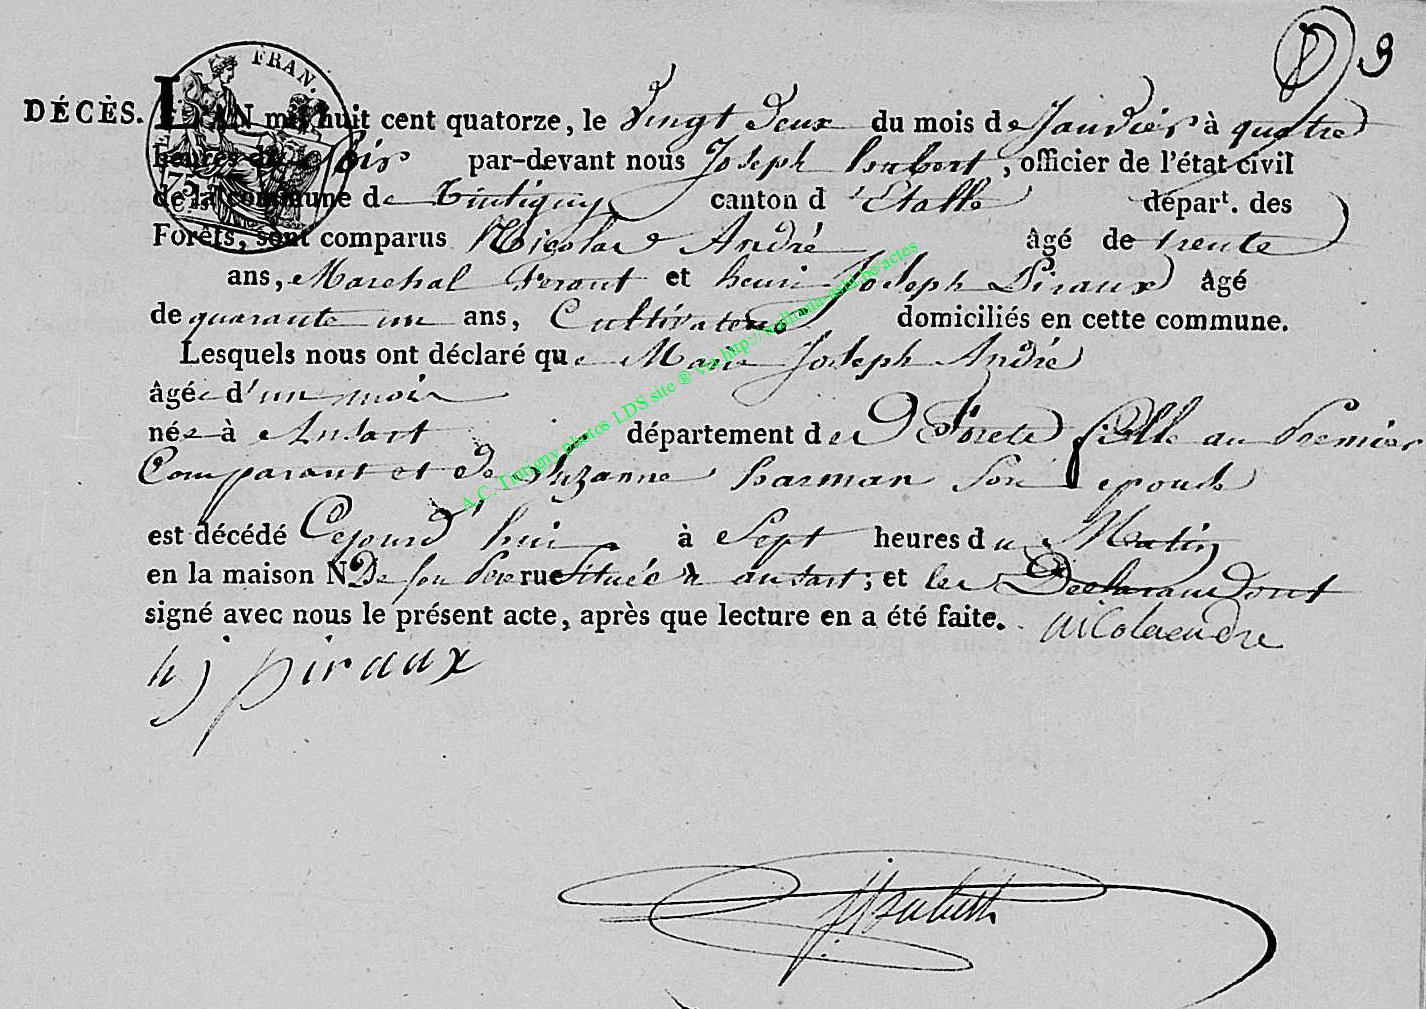 D 9
FRAN.
DÉCÈS. L'AN mil huit cent quatorze, le Vingt Deux du mois de Janvier à quatre
heures du Soir par-devant nous Joseph hubert, officier de l'état civil
75
de la commune de Tintigny canton d'Etalle départ. des
Forêts, sont comparus Nicolas André âgé de trente
ans, Marechal ferant et henri Joseph Piraux âgé
de quarante un ans, Cultivateur domiciliés en cette commune.
Lesquels nous ont déclaré que Marie Joseph André
âgée d'un mois
née à Ansart département des Forets fille au Premier
Comparant et de Suzanne harman Son epouse
est décédé Cejourd'hui à Sept heures du Matin
en la maison N. De son Pere rue Située à ansart; et les Declarans ont
signé avec nous le présent acte, après que lecture en a été faite. nicolas andre
hj piraux
J hubert
A.C. Tintigny photos LDS site ® via http://wallonia-asbl.be/actes